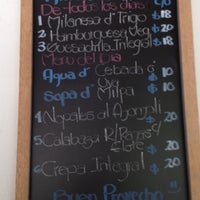 De todos los dias
1 Milanesa d' Trigo $ 18
2 Hamburguesa Veg $ 20
3 Quesadilla Integral $ 18
Menu del Dia
Agua d' Cebada ó $ 10
Uva
Sopa d' Milpa $ 10
4 Nopales al Ajonjolí $ 20
5 Calabaza R/ $ 20
Elote
6 Crepa Integral $ 20
Buen Provecho